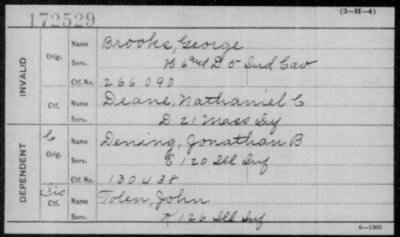 172529
(3-H-4)
INVALID
Orig. Name Brooks, George
Serv. H 6 and D 5 Ind Cav
Ctf. No. 266090
Ctf. Name Deane, Nathaniel C
Serv. D 21 Mass Inf
DEPENDENT
C
Orig. Name Dening, Jonathan B
Serv. E 120 Ill Inf
Ctf. No. 130438
Ctf. Name Tolen, John
Serv. K 126 Ill Inf